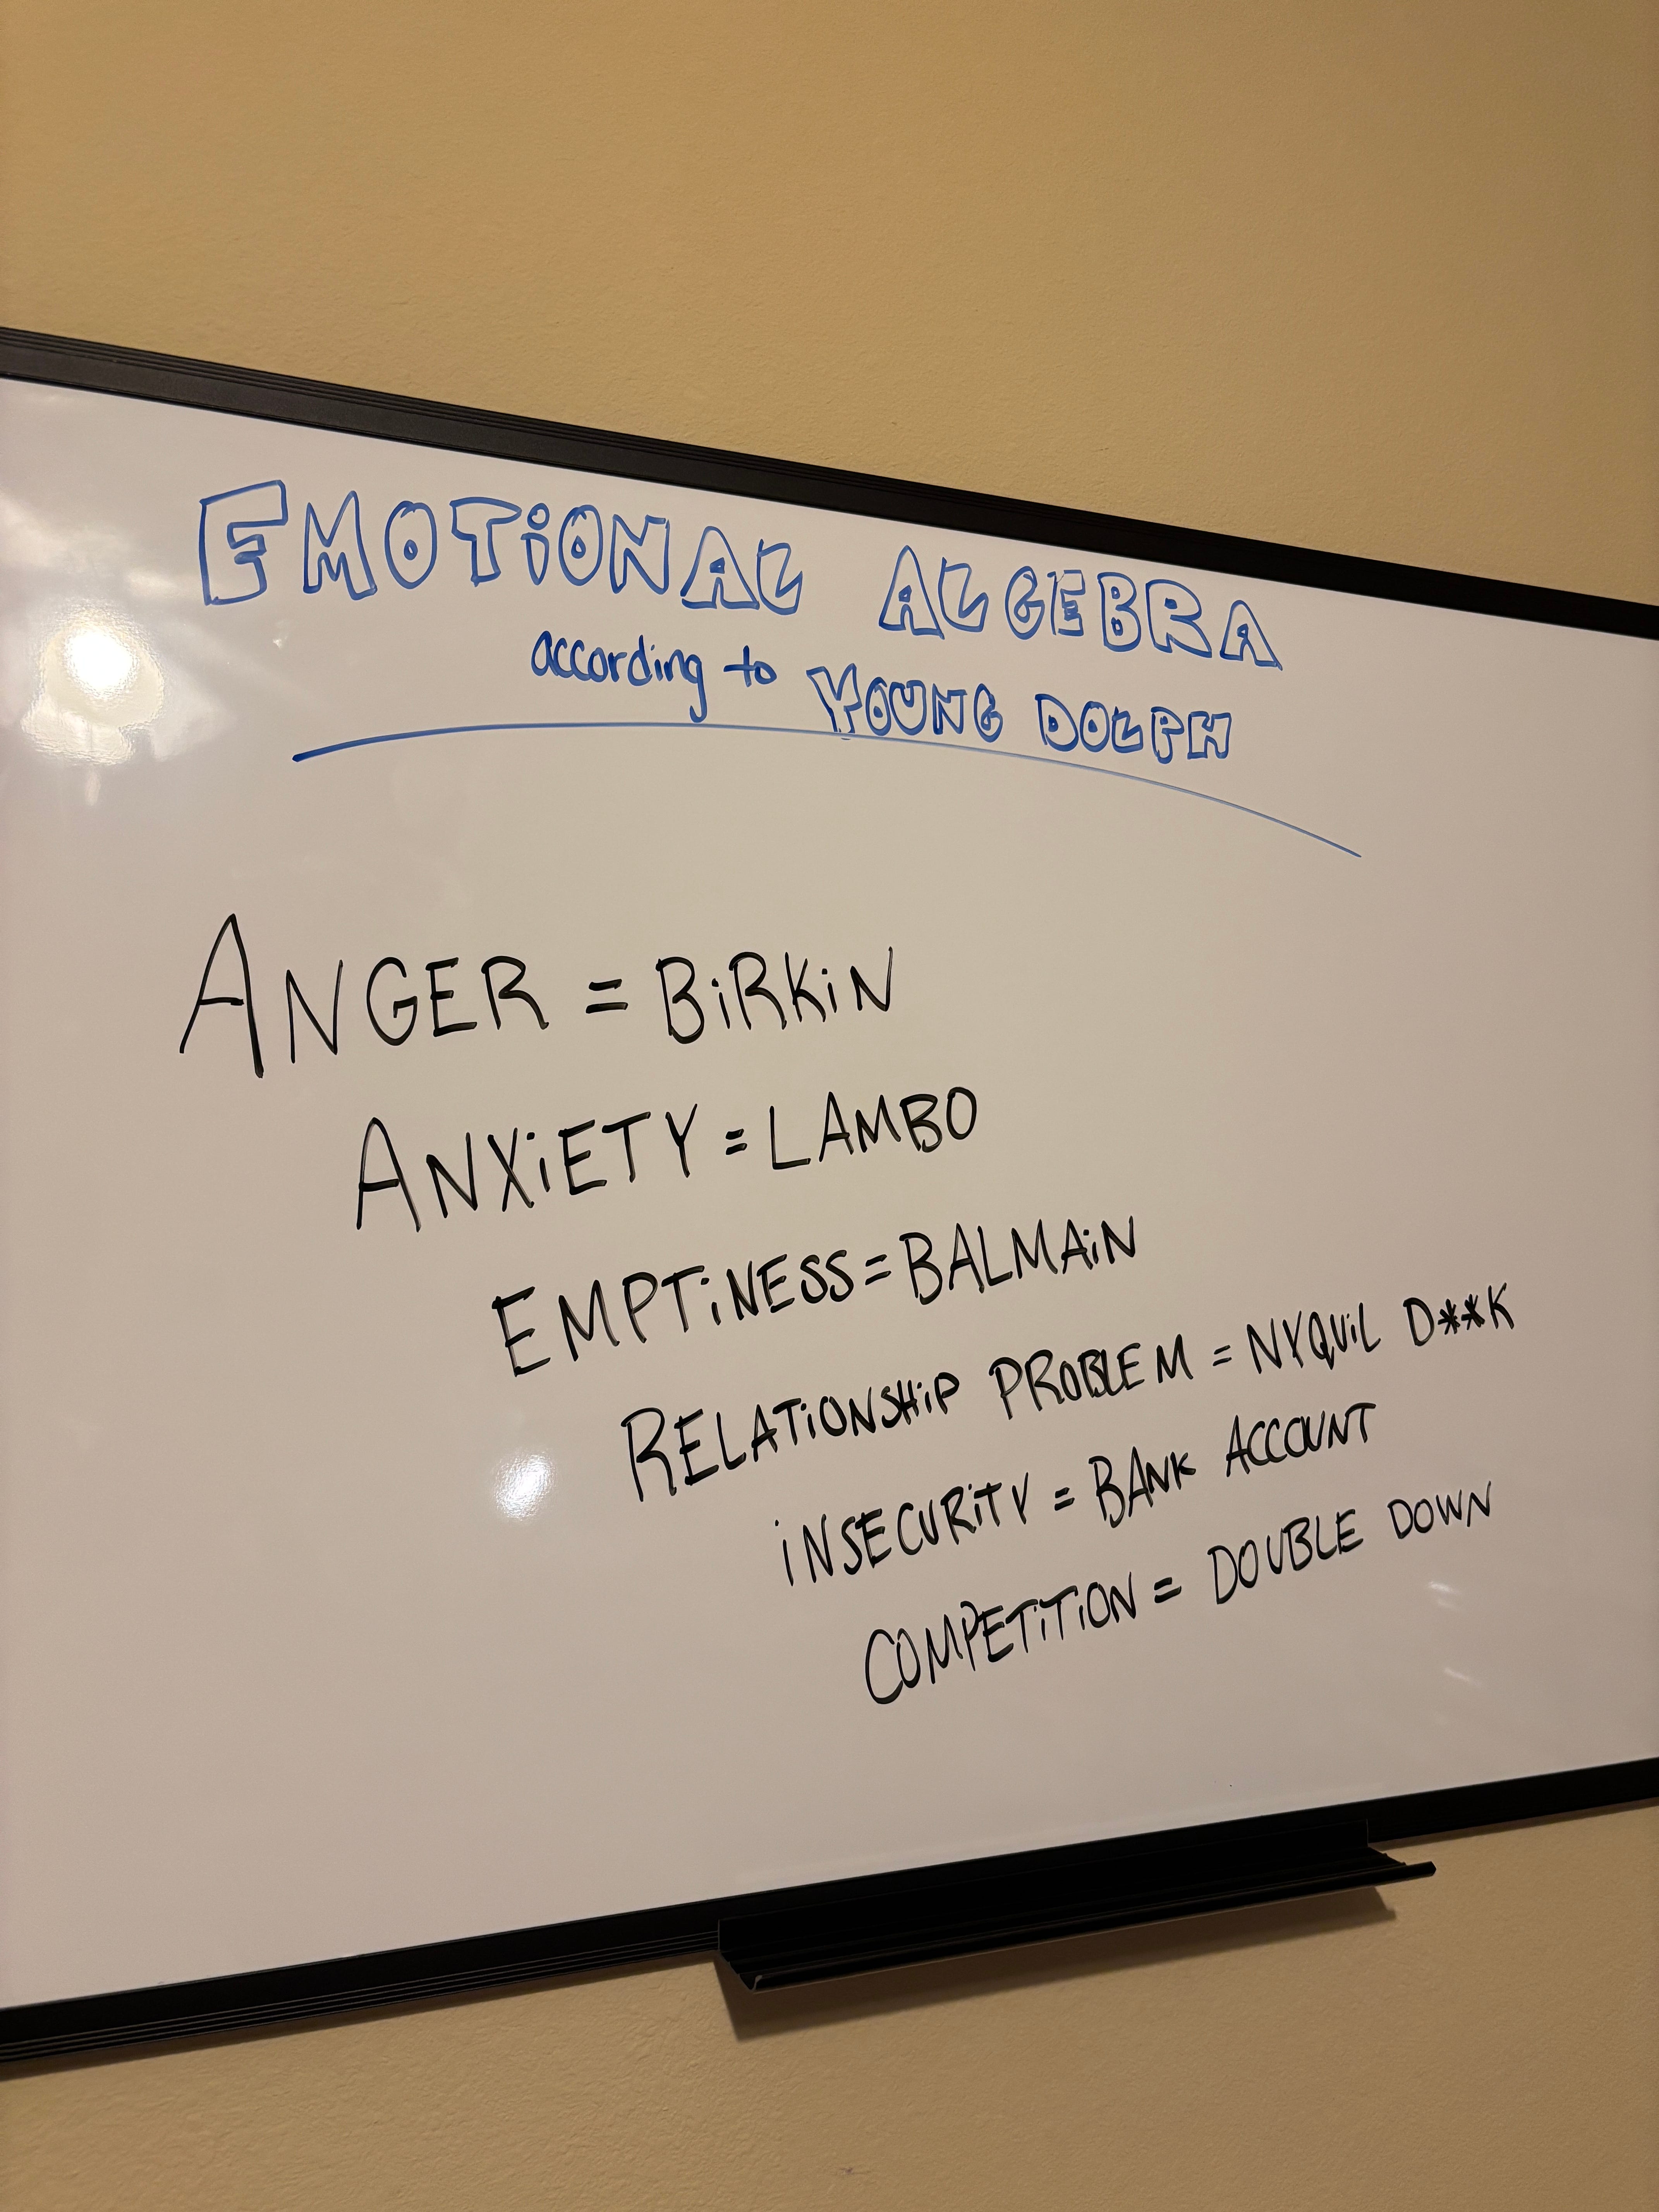 EMOTiONAL ALGEBRA
according to YOUNG DOLPH
ANGER = BiRKiN
ANXiETY = LAMBO
EMPTiNESS = BALMAiN
RELATiONSHiP PROBLEM = NYQUiL D**K
iNSECURiTY = BANK ACCOUNT
COMPETiTiON = DOUBLE DOWN